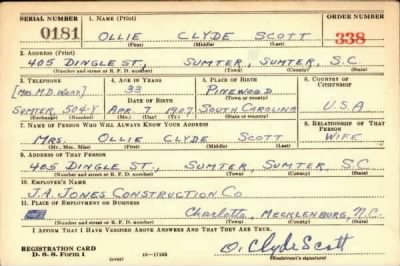 SERIAL NUMBER 1. NAME (Print) ORDER NUMBER
0181 OLLIE CLYDE SCOTT 338
(First) (Middle) (Last)
2. ADDRESS (Print)
405 DINGLE ST., SUMTER, SUMTER, S.C.
(Number and street or R. F. D. number) (Town) (County) (State)
3. TELEPHONE 4. AGE IN YEARS 5. PLACE OF BIRTH 6. COUNTRY OF CITIZENSHIP
[MRS. M.D. WARD] 33 PINEWOOD
DATE OF BIRTH (Town or county)
SUMTER, 504-Y APR. 7 1907 SOUTH CAROLINA U.S.A
(Exchange) (Number) (Mo.) (Day) (Yr.) (State or country)
7. NAME OF PERSON WHO WILL ALWAYS KNOW YOUR ADDRESS 8. RELATIONSHIP OF THAT PERSON
MRS. OLLIE CLYDE SCOTT WIFE
(Mr., Mrs., Miss) (First) (Middle) (Last)
9. ADDRESS OF THAT PERSON
405 DINGLE ST., SUMTER, SUMTER, S.C
(Number and street or R. F. D. number) (Town) (County) (State)
10. EMPLOYER'S NAME
J.A. JONES CONSTRUCTION CO
11. PLACE OF EMPLOYMENT OR BUSINESS
Charlotte, MECKLENBURG, N.C.
(Number and street or R. F. D. number) (Town) (County) (State)
I AFFIRM THAT I HAVE VERIFIED ABOVE ANSWERS AND THAT THEY ARE TRUE.
REGISTRATION CARD
D. S. S. Form 1 (over) 16—17105 O. Clyde Scott